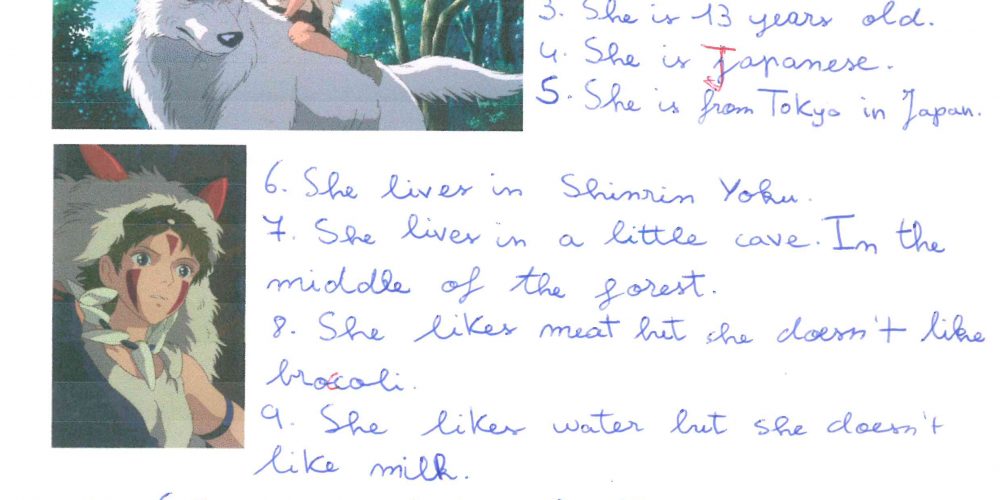 3. She is 13 years old.
4. She is Japanese.
5. She is from Tokyo in Japan.
6. She lives in Shinrin Yoku.
7. She lives in a little cave. In the
middle of the forest.
8. She likes meat but she doesn't like
brocoli.
9. She likes water but she doesn't
like milk.